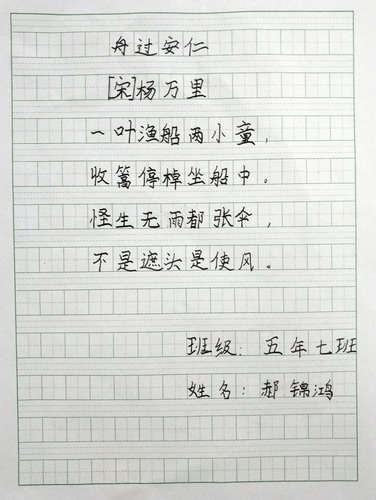 舟过安仁
[宋]杨万里
一叶渔船两小童，
收篙停棹坐船中。
怪生无雨都张伞，
不是遮头是使风。
班级：五年七班
姓名：郝锦鸿